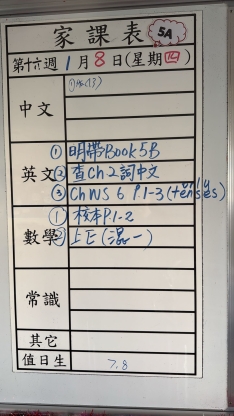 家課表 5A
第十六週1月8日(星期四)
中文
① 明帶Book5B
英文 ② 查Ch2詞中文
③ Ch WS 6 P1-3 (tenses)
① 核本P1-2
數學 ② 上E(混一)
常識
其它
值日生 7.8